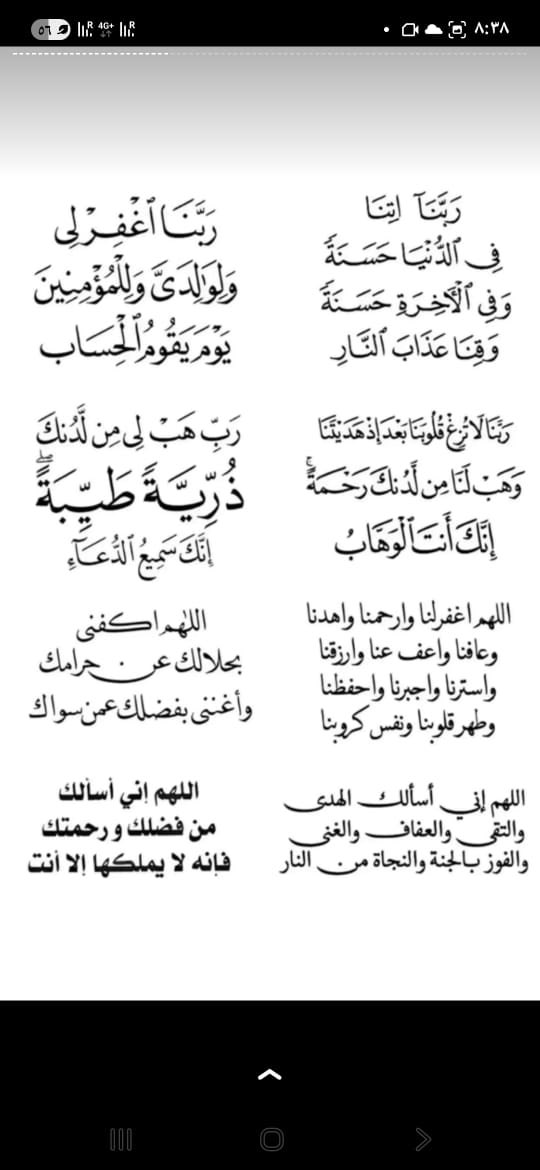 ٨:٣٨
٥٦
4G+
R
R
رَبَّنَآ اتِنَا
فِى ٱلدُّنْيَا حَسَنَةً
وَفِى ٱلْأَخِرَةِ حَسَنَةً
وَقِنَا عَذَابَ ٱلنَّارِ
رَبَّنَا ٱغْفِرْ لِى
وَلِوَٰلِدَىَّ وَلِلْمُؤْمِنِينَ
يَوْمَ يَقُومُ ٱلْحِسَاب
رَبَّنَا لَا تُزِغْ قُلُوبَنَا بَعْدَ إِذْ هَدَيْتَنَا
وَهَبْ لَنَا مِن لَّدُنكَ رَحْمَةً ۚ
إِنَّكَ أَنتَ ٱلْوَهَّابُ
رَبِّ هَبْ لِى مِن لَّدُنكَ
ذُرِّيَّةً طَيِّبَةً ۖ
إِنَّكَ سَمِيعُ ٱلدُّعَآءِ
اللهم اغفر لنا وارحمنا واهدنا
وعافنا واعف عنا وارزقنا
واسترنا واجبرنا واحفظنا
وطهر قلوبنا ونفس كروبنا
اللهم اكفنى
بحلالك عن حرامك
وأغننى بفضلك عمن سواك
اللهم إني أسألك الهدى
والتقى والعفاف والغنى
والفوز بالجنة والنجاة من النار
اللهم إني أسألك
من فضلك و رحمتك
فإنه لا يملكها إلا أنت